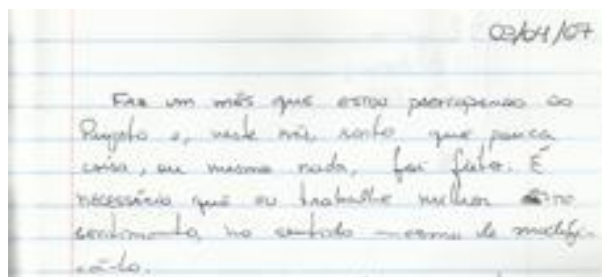 03/04/07
Faz um mês que estou participando do
Projeto e, neste mês, sinto que pouca
coisa, ou mesmo nada, foi feita. É
necessário que eu trabalhe melhor
sentimento, no sentido mesmo de modificá
-lo.